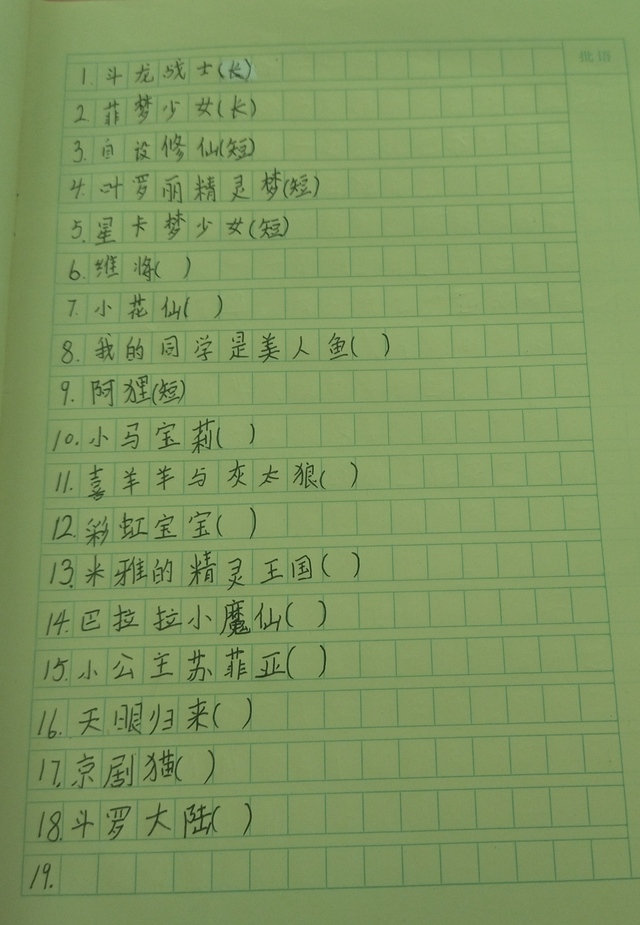 批语
1. 斗龙战士(长)
2. 菲梦少女(长)
3. 自设修仙(短)
4. 叶罗丽精灵梦(短)
5. 星卡梦少女(短)
6. 维将( )
7. 小花仙( )
8. 我的同学是美人鱼( )
9. 阿狸(短)
10. 小马宝莉( )
11. 喜羊羊与灰太狼( )
12. 彩虹宝宝( )
13. 米雅的精灵王国( )
14. 巴拉拉小魔仙( )
15. 小公主苏菲亚( )
16. 天眼归来( )
17. 京剧猫( )
18. 斗罗大陆( )
19.